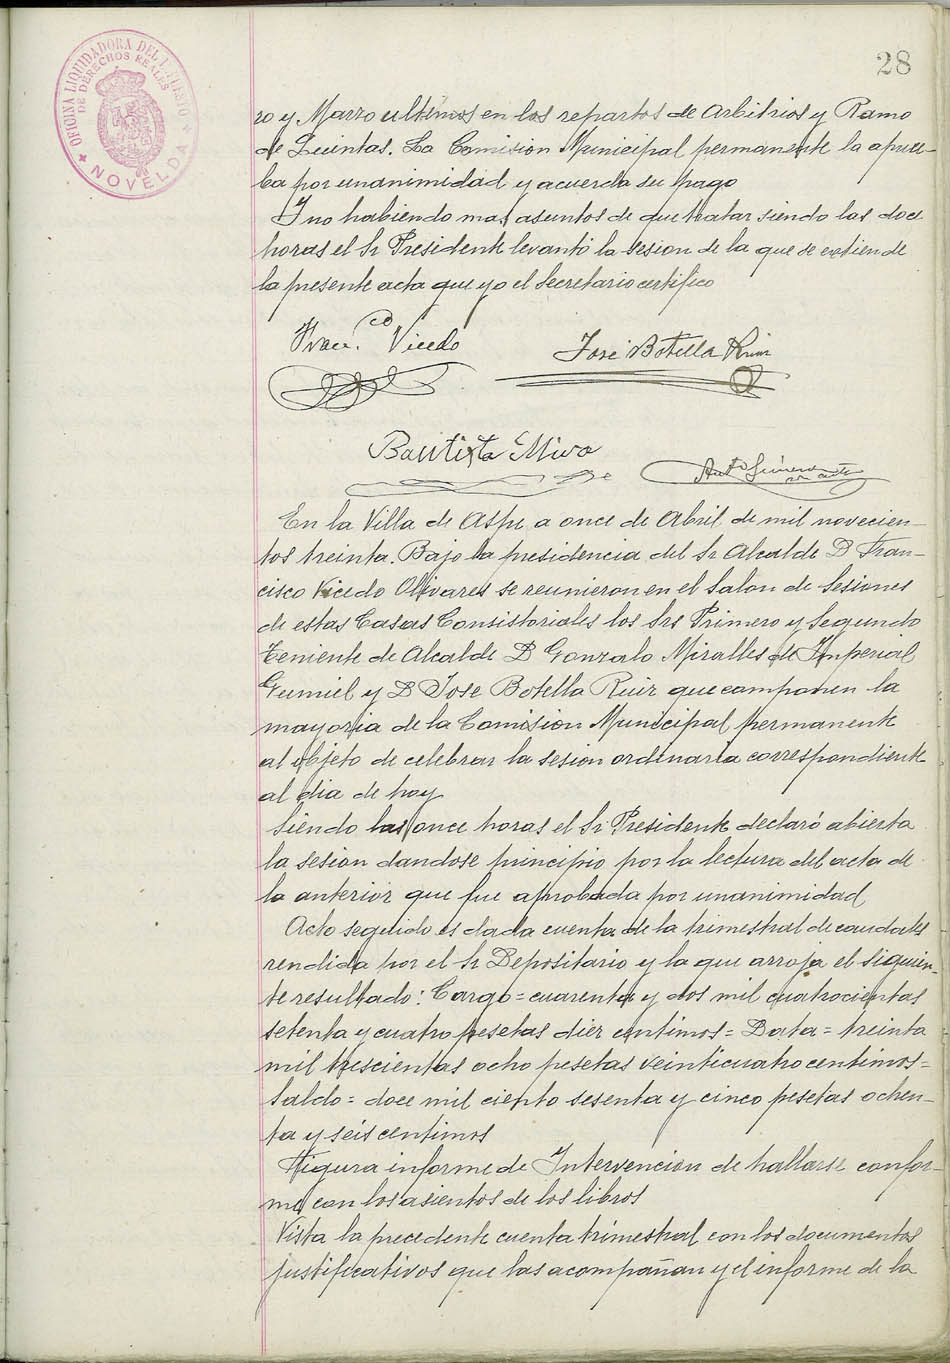 OFICINA LIQUIDADORA DEL IMPUESTO
DE DERECHOS REALES
NOVELDA
28
ro y Marzo ultimos en los repartos de Arbitrios y Ramo
de Quintas. La Comision Municipal permanente la aprue-
ba por unanimidad y acuerda su pago
Y no habiendo mas asuntos de que tratar siendo las doce
horas el Sr Presidente levantó la sesion de la que se extiende
la presente acta que yo el Secretario certifico
Franc.co Vicedo
José Botella Ruiz
Bautista Mira
Anto Gimenez
En la Villa de Aspe a once de Abril de mil novecien-
tos treinta. Bajo la presidencia del Sr Alcalde D Fran-
cisco Vicedo Olivares se reunieron en el Salon de Sesiones
de estas Casas Consistoriales los Srs Primero y Segundo
Teniente de Alcalde D Gonzalo Miralles de Imperial
Gumiel y D Jose Botella Ruiz que componen la
mayoria de la Comision Municipal permanente
al objeto de celebrar la sesion ordinaria correspondiente
al dia de hoy
Siendo las once horas el Sr Presidente declaró abierta
la sesion dandose principio por la lectura del acta de
la anterior que fue aprobada por unanimidad
Acto seguido es dada cuenta de la trimestral de caudales
rendida por el Sr Depositario y la que arroja el siguien-
te resultado: Cargo = cuarenta y dos mil cuatrocientas
setenta y cuatro pesetas diez centimos = Data = treinta
mil trescientas ocho pesetas veinticuatro centimos =
Saldo = doce mil ciento sesenta y cinco pesetas ochen-
ta y seis centimos
Figura informe de Intervencion de hallarse confor-
me con los asientos de los libros
Vista la precedente cuenta trimestral con los documentos
justificativos que las acompañan y el informe de la